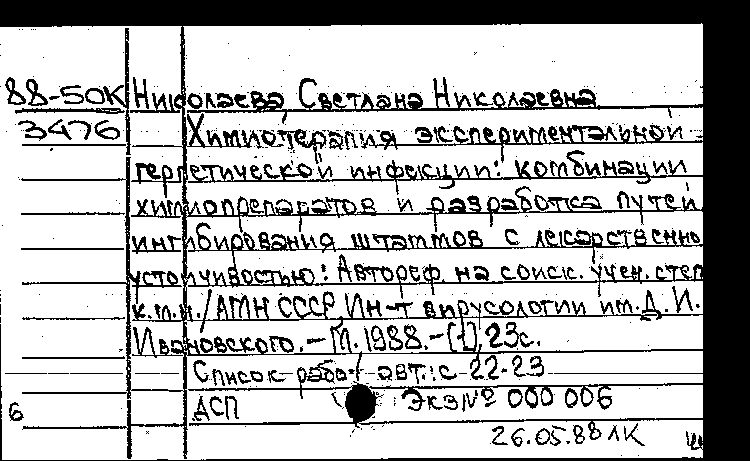 88-50К Николаева Светлана Николаевна
3476 Химиотерапия экспериментальной
герпетической инфекции: комбинации
химиопрепаратов и разработка путей
ингибирования штаммов с лекарственно
устойчивостью: Автореф. на соиск. учен. степ
к.м.н./АМН СССР, Ин-т вирусологии им. Д. И.
Ивановского.-М. 1988.-[1], 23с.
Список работ авт.: с 22-23
6 ДСП Экз № 000 006
26.05.88 ЛК